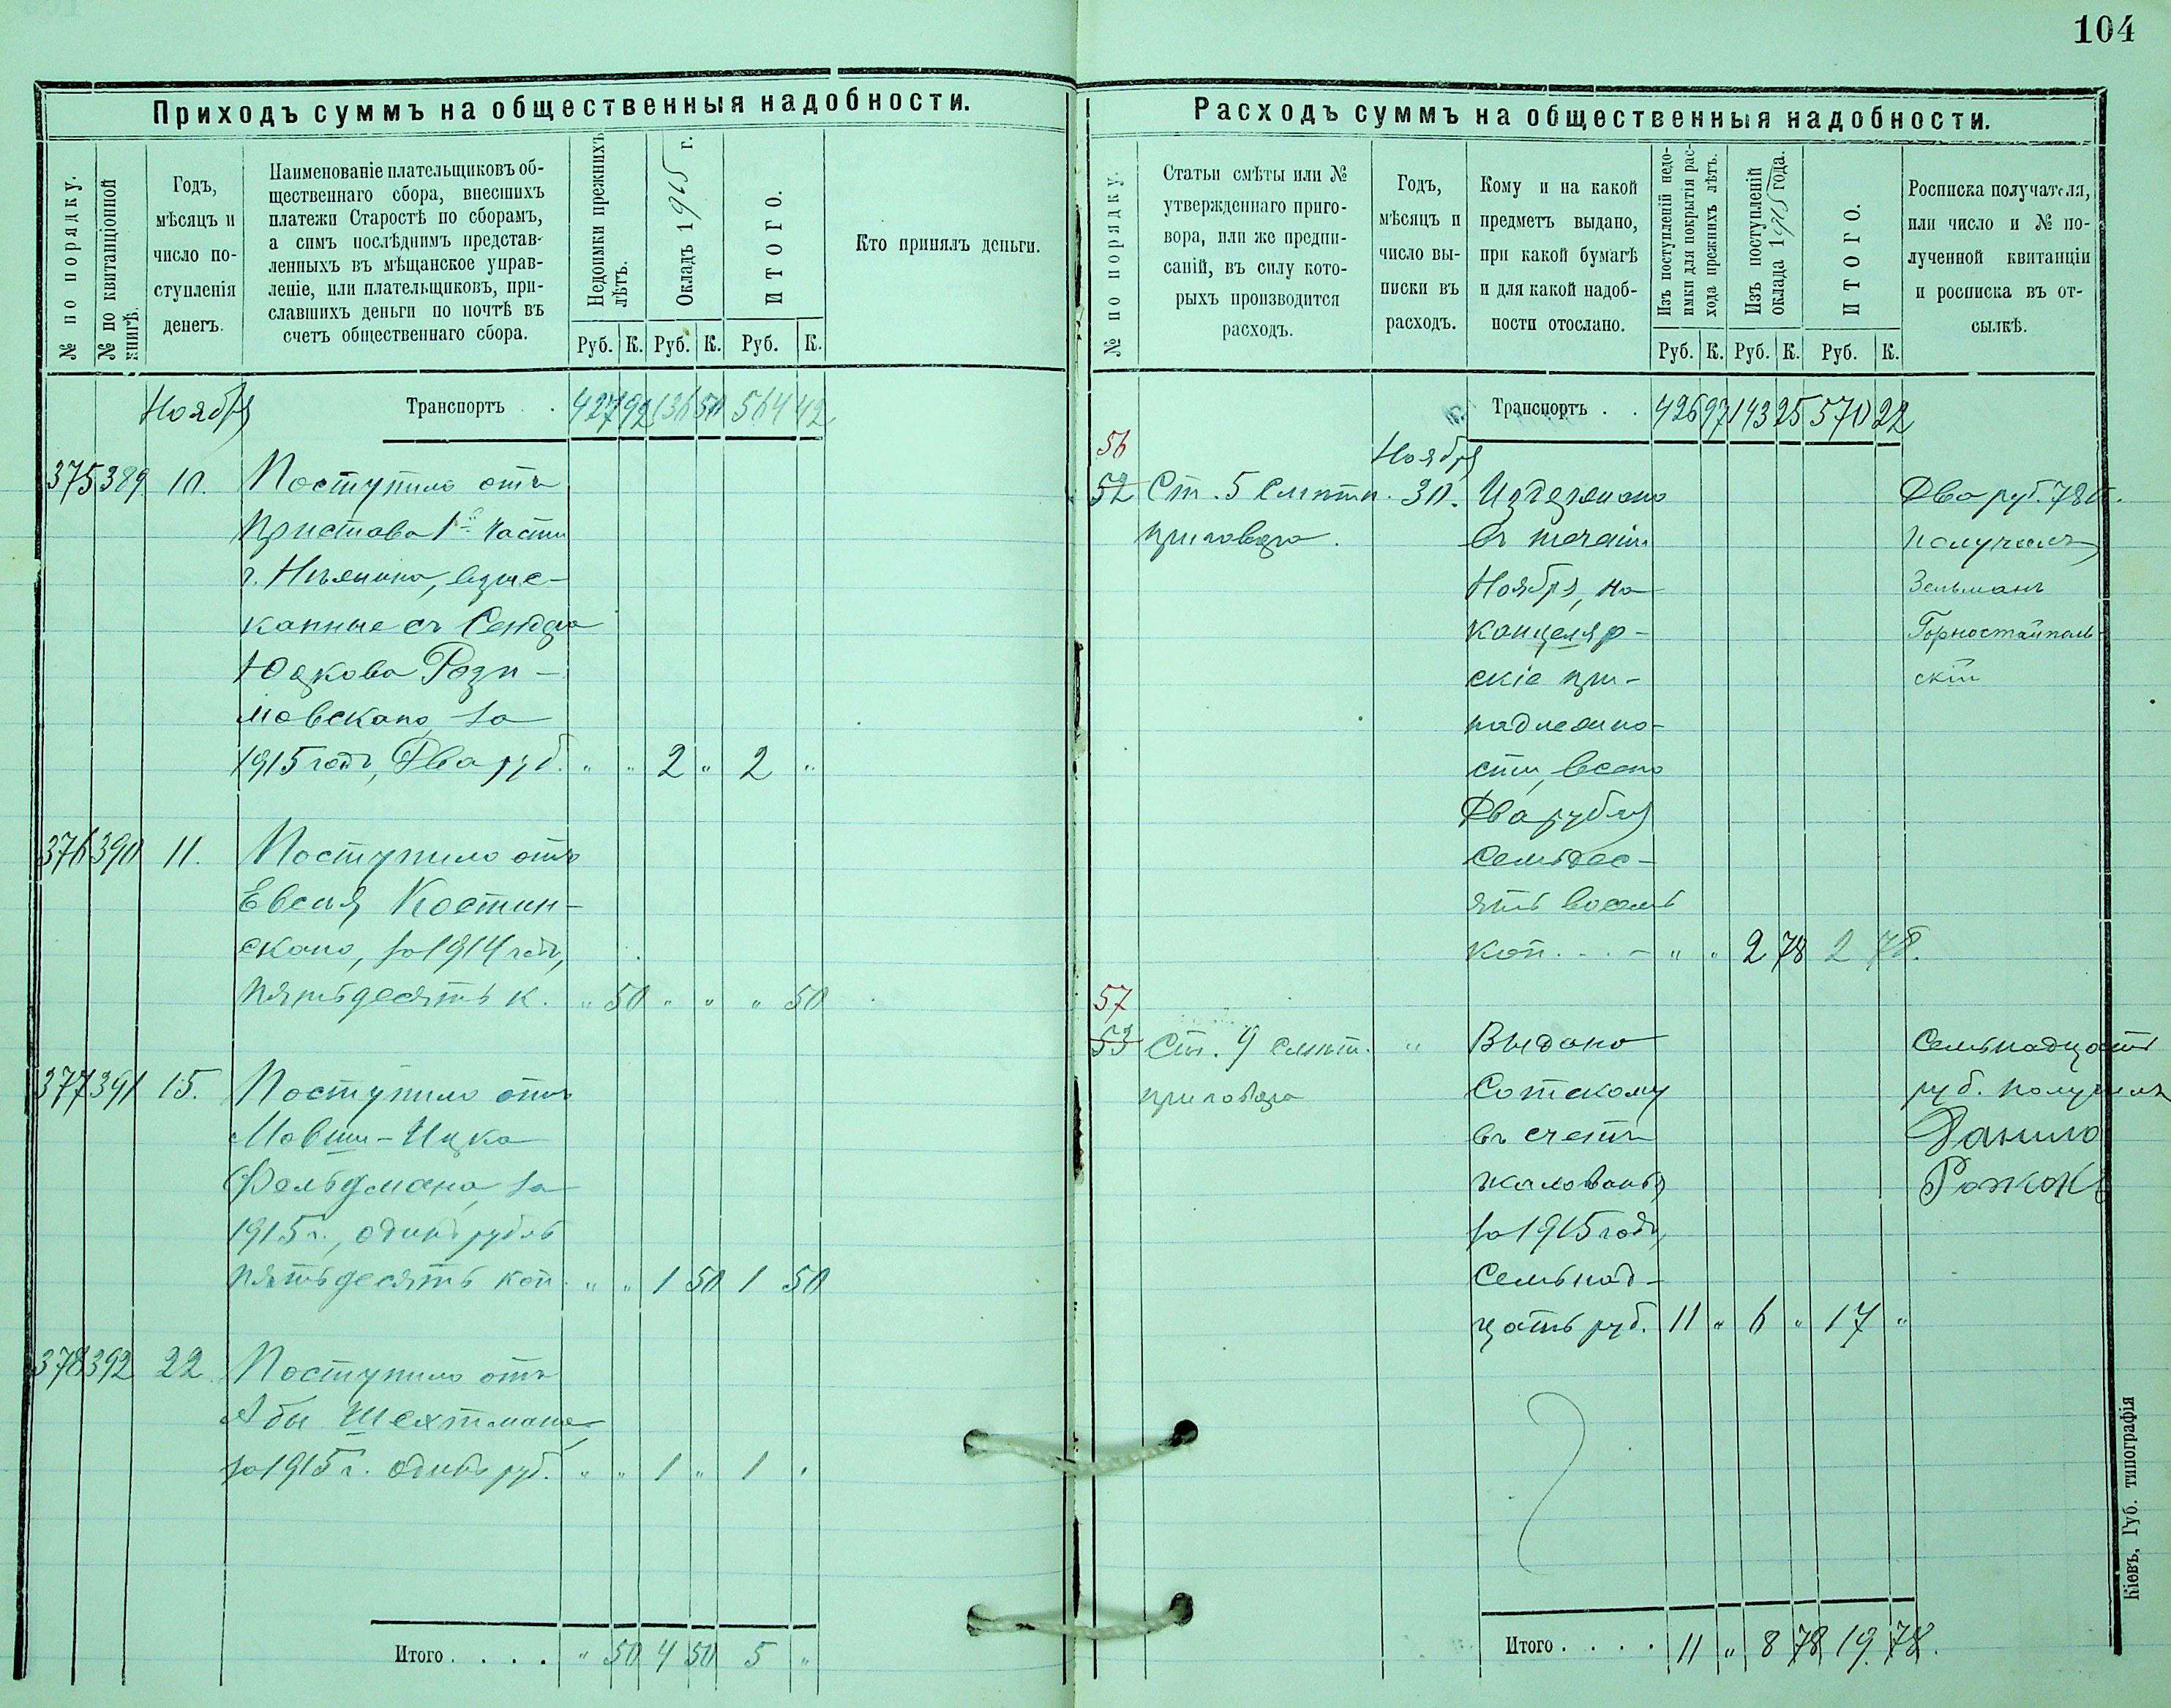 104
Приходъ суммъ на общественныя надобности.
№ по порядку.
№ по квитанціонной
книгѣ.
Годъ,
мѣсяцъ и
число по-
ступленія
денегъ.
Наименованіе плательщиковъ об-
щественнаго сбора, внесшихъ
платежи Старостѣ по сборамъ,
а симъ послѣднимъ представ-
ленныхъ въ мѣщанское управ-
леніе, или плательщиковъ, при-
славшихъ деньги по почтѣ въ
счетъ общественнаго сбора.
Недоимки прежнихъ
лѣтъ.
Окладъ 1915 г.
ИТОГО.
Руб. К. Руб. К. Руб. К.
Кто принялъ деньги.
Ноября Транспортъ . . 427 92 136 50 564 42
375 389 10. Поступило отъ
Пристава 1й Части
г. Нѣжина, взыс-
канные съ Сендера
Юдкова
1915 годъ, Два руб. " " 2 " 2 "
376 390 11. Поступило отъ
Евсѣя Костин-
скаго, за 1914 годъ,
пятьдесятъ к. " 50 " " " 50
377 391 15. Поступило отъ
Мовши-Ицка
Фельдмана, за
1915 г., одинъ рубль
пятьдесятъ коп. " " 1 50 1 50
378 392 22 Поступило отъ
Абы Шехтмана,
за 1915 г. одинъ руб. " " 1 " 1 "
Итого . . . . " 50 4 50 5 "
Расходъ суммъ на общественныя надобности.
№ по порядку.
Статьи смѣты или №
утвержденнаго приго-
вора, или же предпи-
саній, въ силу кото-
рыхъ производится
расходъ.
Годъ,
мѣсяцъ и
число вы-
писки въ
расходъ.
Кому и на какой
предметъ выдано,
при какой бумагѣ
и для какой надоб-
ности отослано.
Изъ поступленій недо-
имки для покрытія рас-
хода прежнихъ лѣтъ.
Изъ поступленій
оклада 1915 года.
ИТОГО.
Руб. К. Руб. К. Руб. К.
Росписка получателя,
или число и № по-
лученной квитанціи
и росписка въ от-
сылкѣ.
Транспортъ . . 426 97 143 25 570 22
56
Ноября
52 Ст. 5 смѣтн. 30. Издержано Два руб. 78 к.
приговора. въ теченіи получилъ
Ноября, на Зельманъ
канцеляр- Горностайполь-
скіе при- скій
надлежно-
сти, всего
Два рубля
семьдес-
ять восемь
коп. . . - " " 2 78 2 78.
57
53 Ст. 9 смѣтн. " Выдано Семьнадцать
приговора Сотскому руб. получилъ
въ счетъ Данило
жалованья Рожок
за 1915 годъ,
семьнад-
цать руб. 11 " 6 " 17 "
Итого . . . . 11 " 8 78 19 78.
Кіевъ, Губ. типографія